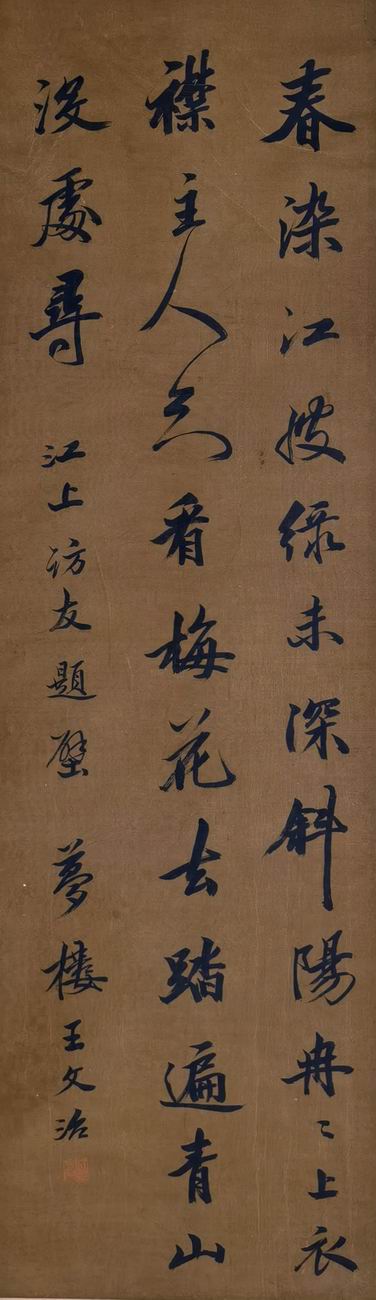 春染江波綠未深斜陽冉〻上衣
襟主人只看梅花去踏遍青山
没處尋
江上訪友題壁
夢樓王文治